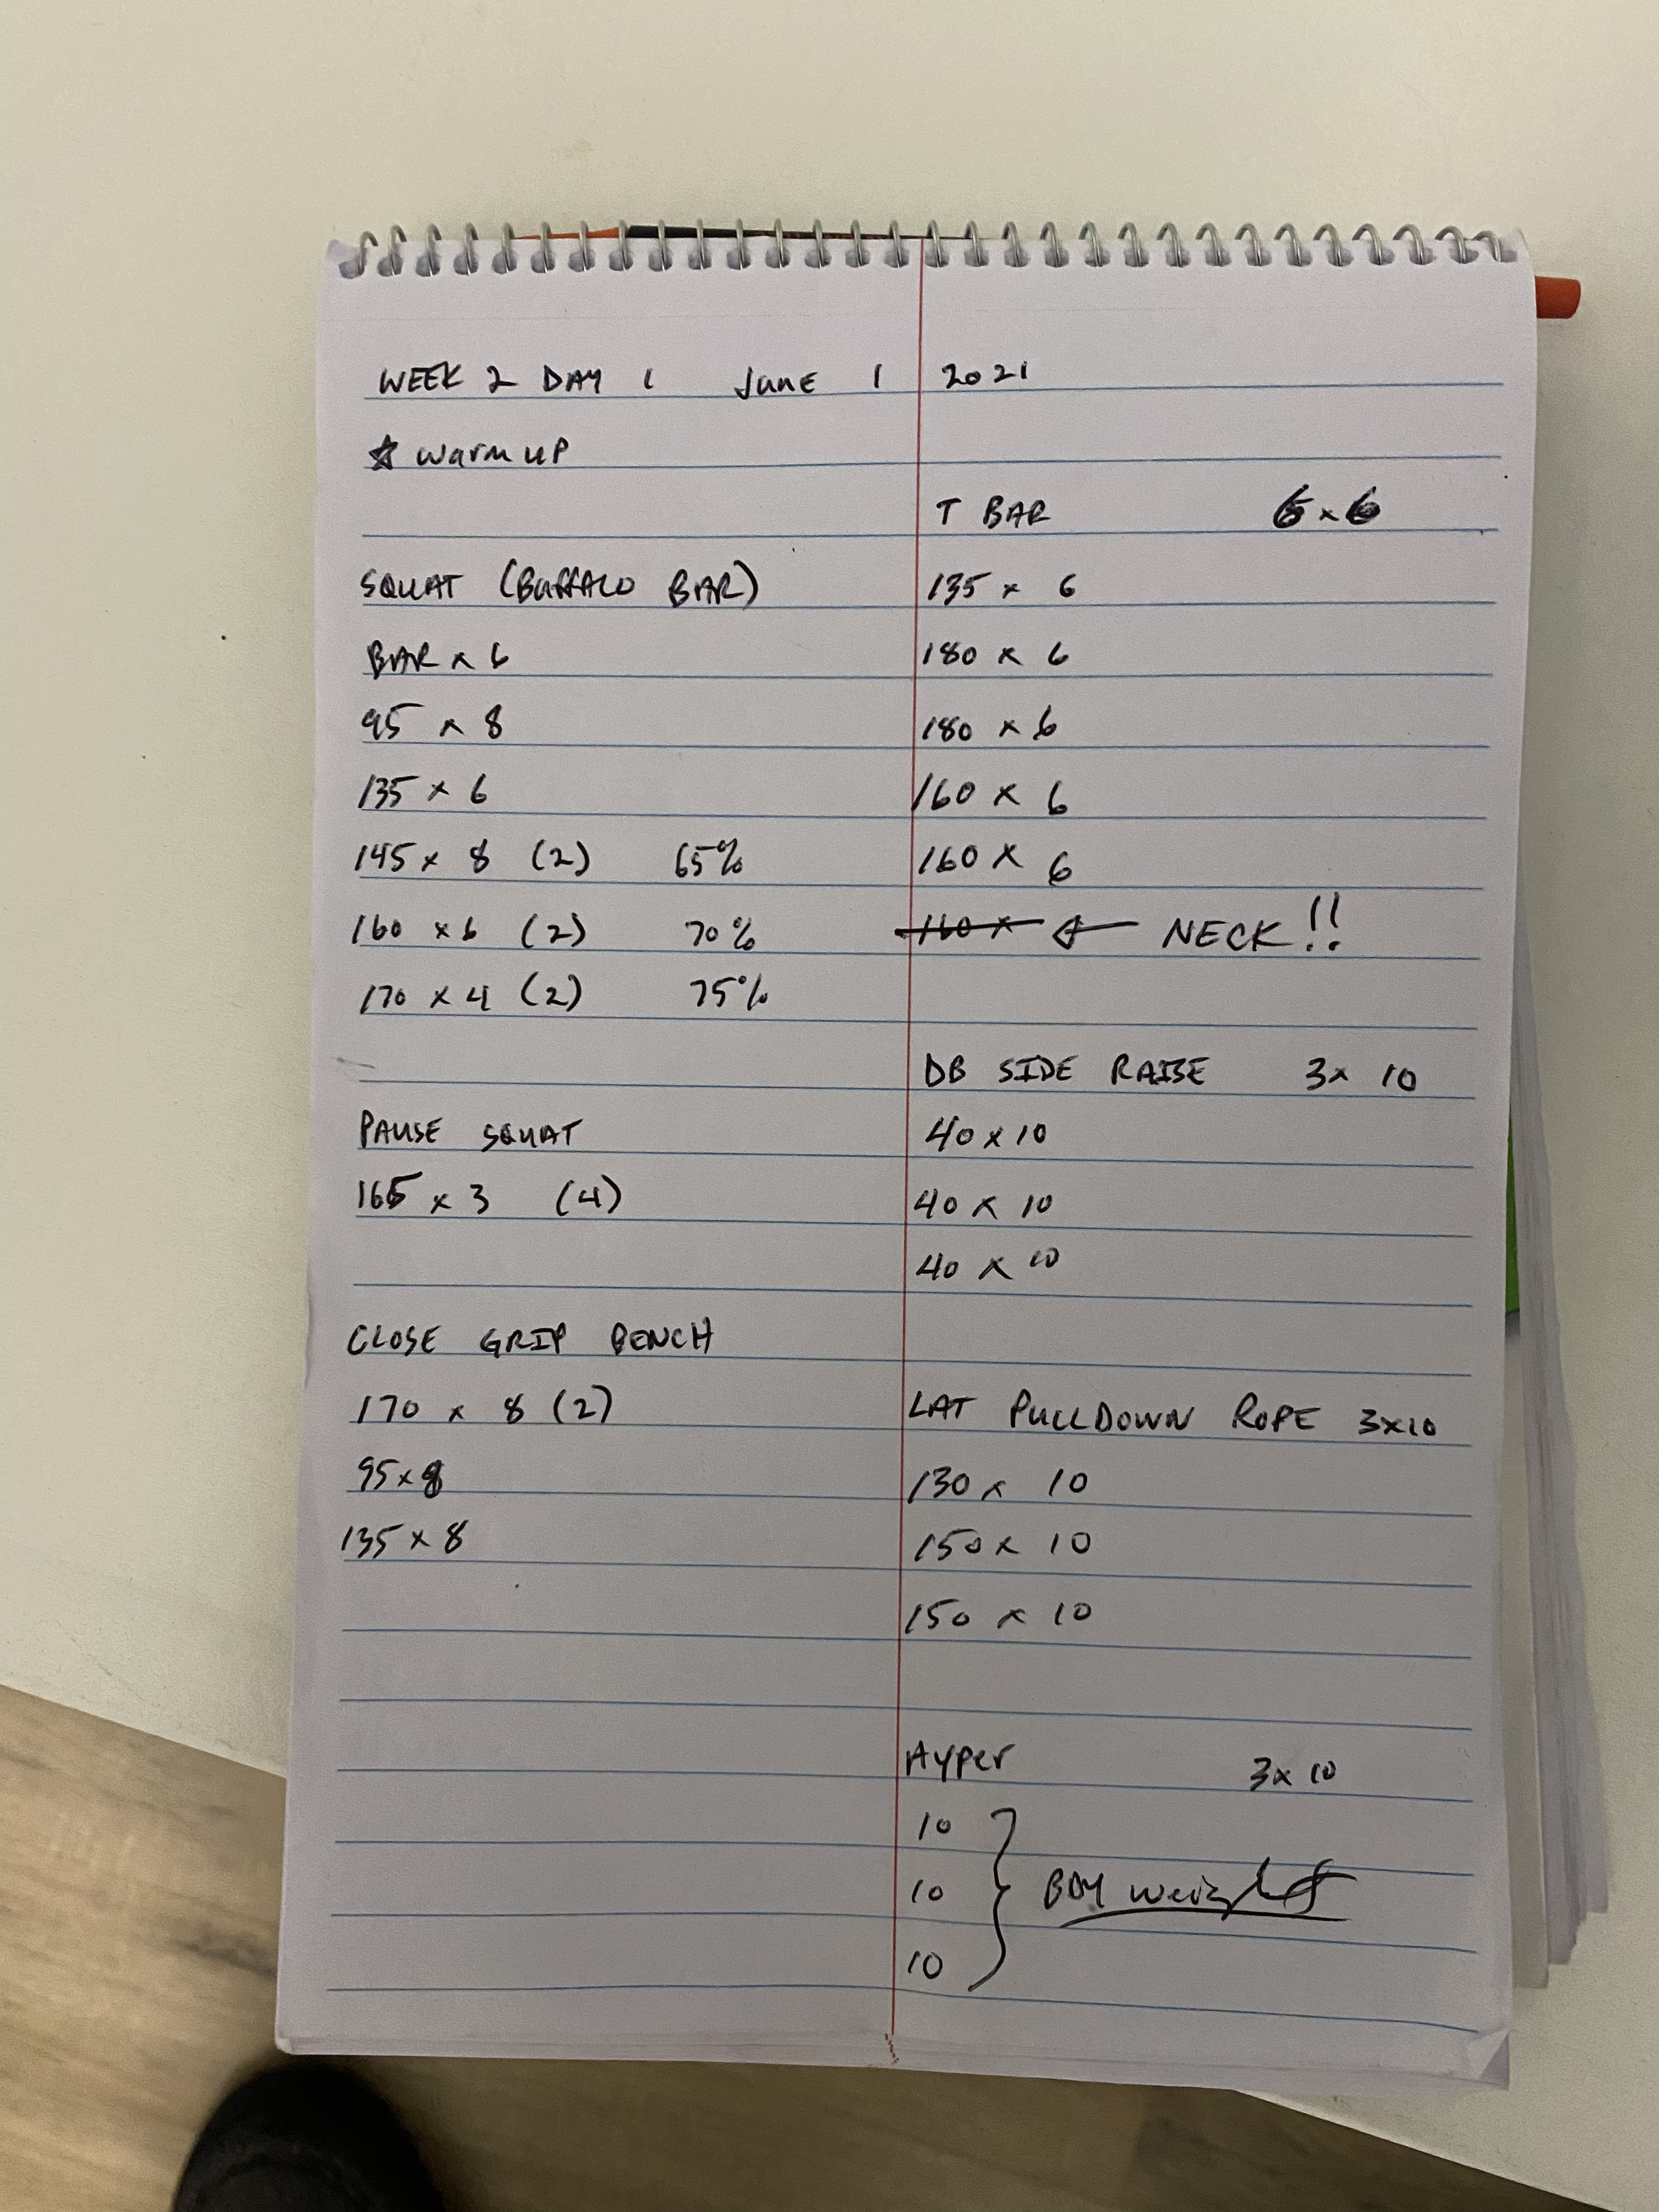 WEEK 2 DAY 1 June 1 2021
☆ warm up
SQUAT (BUFFALO BAR)
BAR x 6
95 x 8
135 x 6
145 x 8 (2) 65%
160 x 6 (2) 70%
170 x 4 (2) 75%
PAUSE SQUAT
165 x 3 (4)
CLOSE GRIP BENCH
170 x 8 (2)
95 x 8
135 x 8
T BAR 6 x 6
135 x 6
180 x 6
180 x 6
160 x 6
160 x 6
160 x ← NECK!!
DB SIDE RAISE 3 x 10
40 x 10
40 x 10
40 x 10
LAT PULLDOWN ROPE 3x10
130 x 10
150 x 10
150 x 10
Hyper 3 x 10
10
10 } BDY weight
10